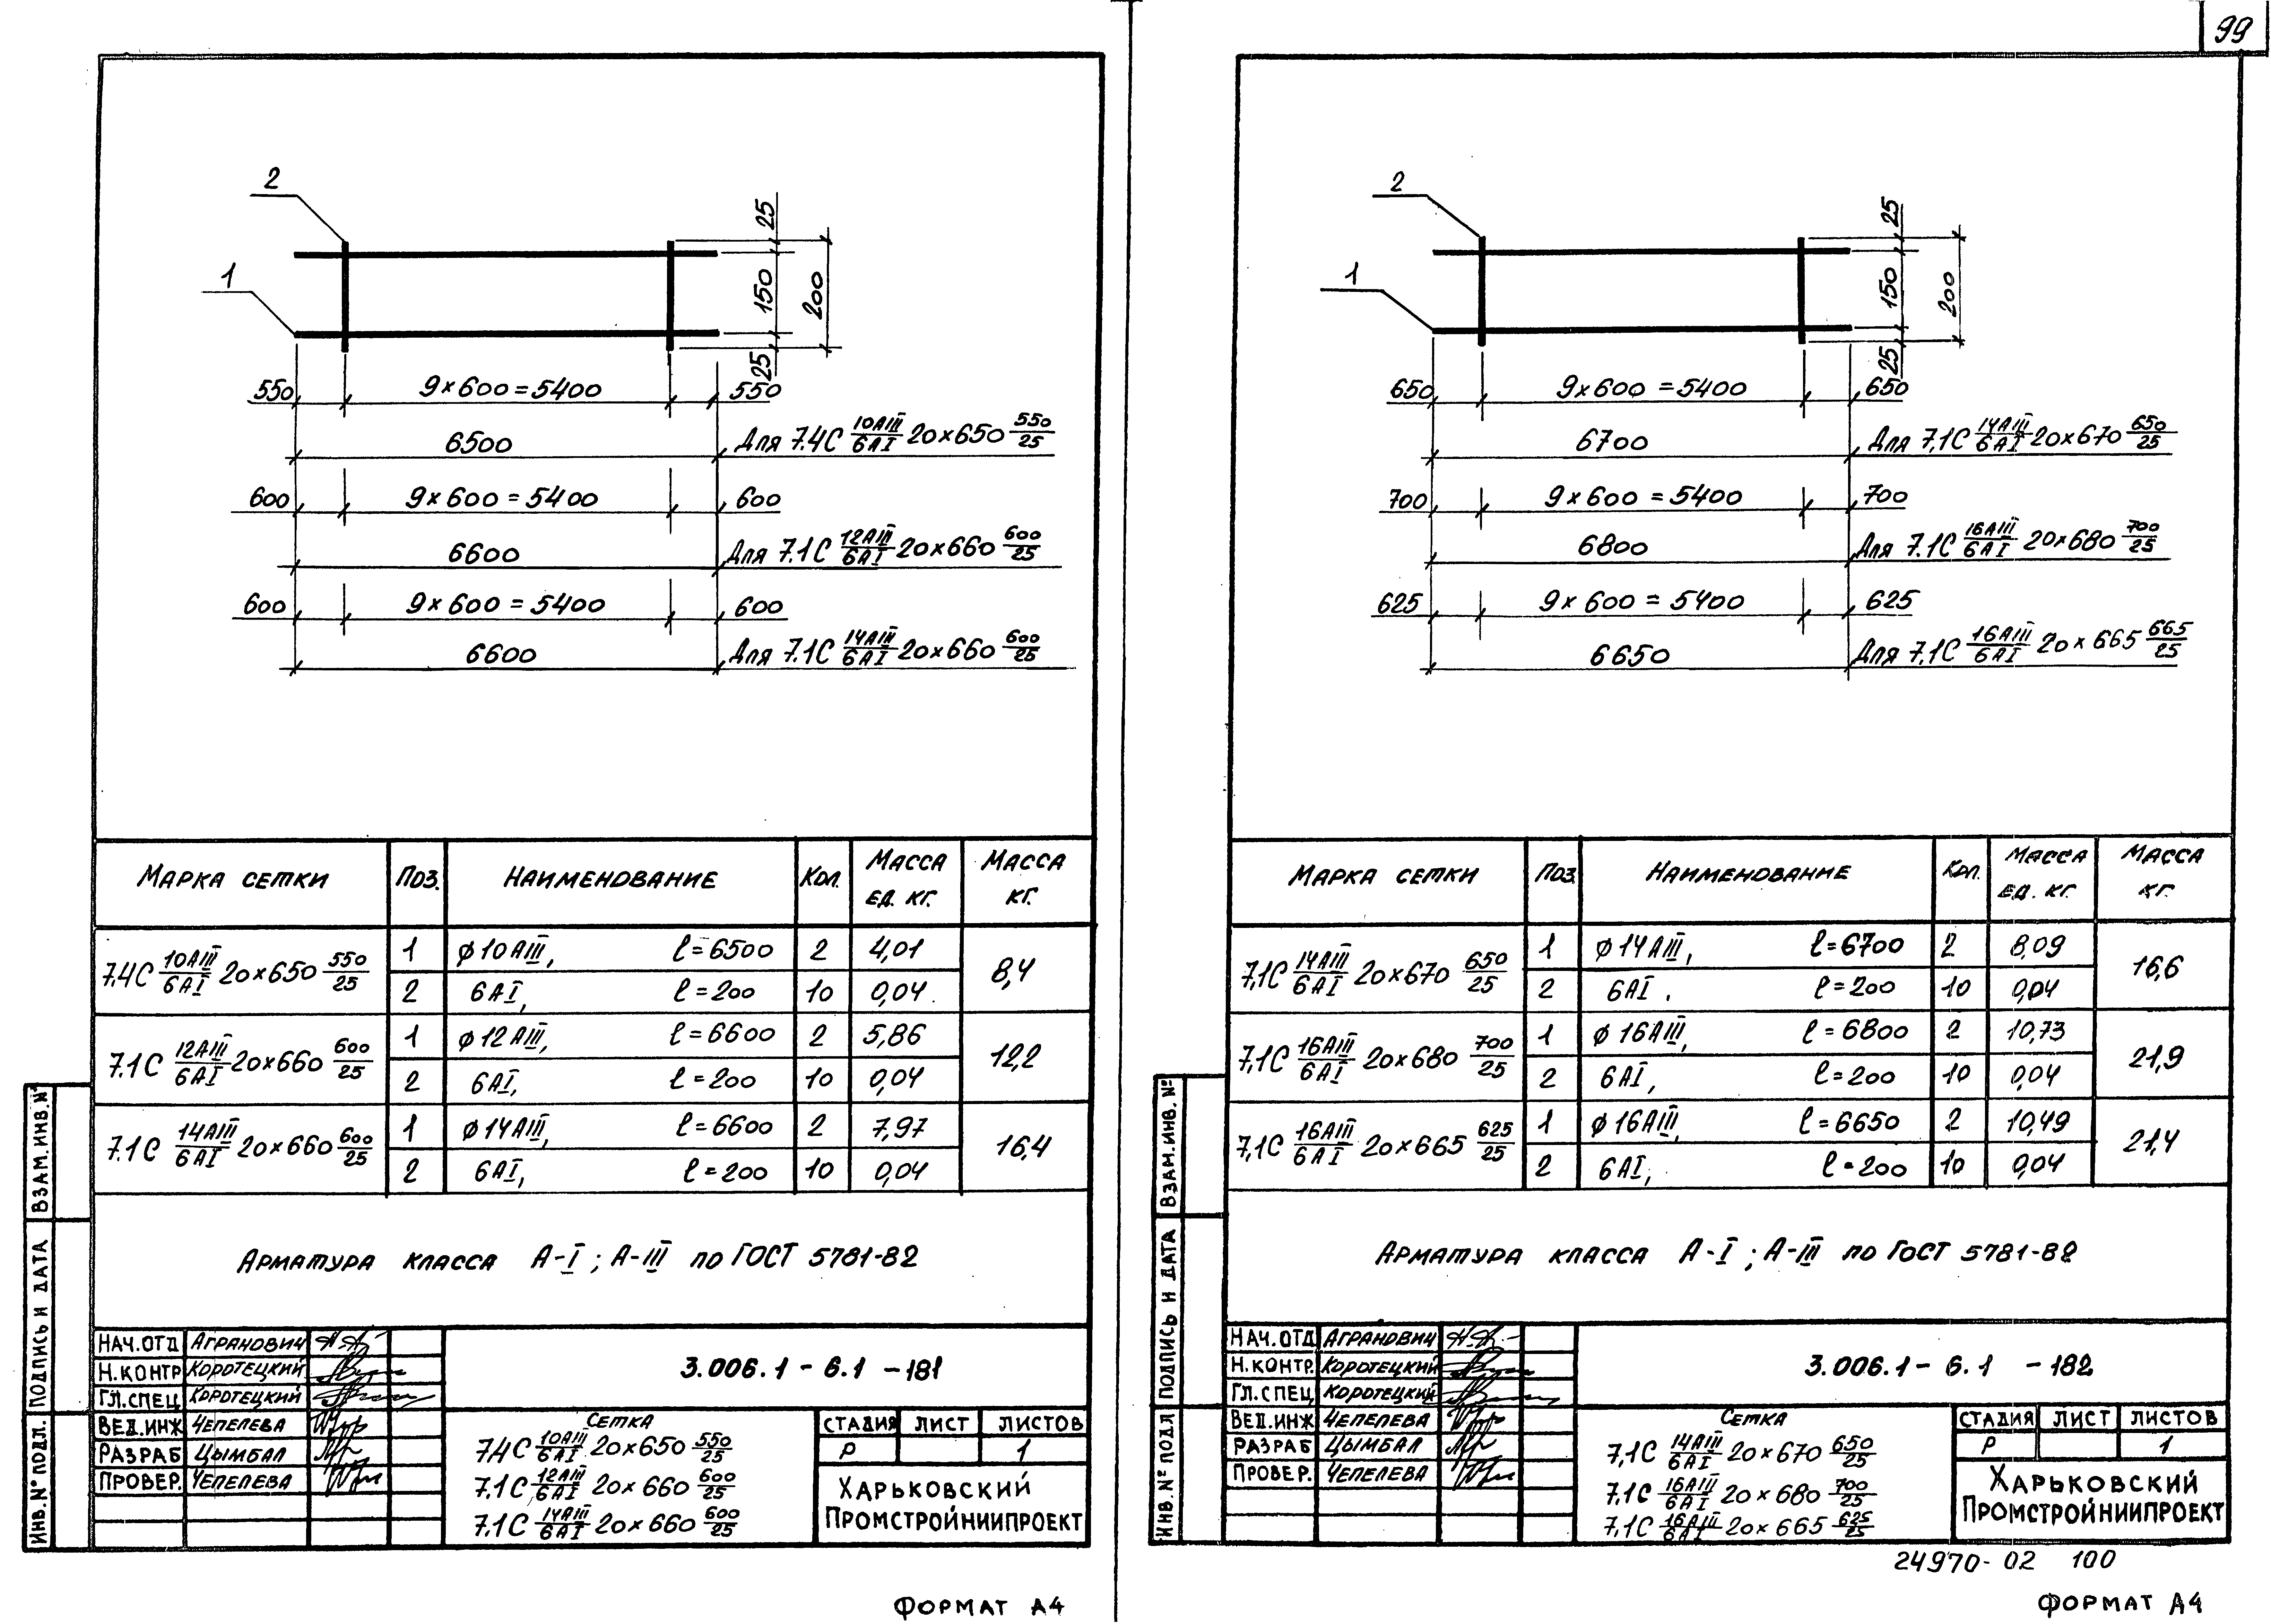 99
2
1
25
150
200
25
550 9×600=5400 550
6500 Для 7.4С 10АIII/6АI 20×650 550/25
600 9×600=5400 600
6600 Для 7.1С 12АIII/6АI 20×660 600/25
600 9×600=5400 600
6600 Для 7.1С 14АIII/6АI 20×660 600/25
Марка сетки Поз. Наименование Кол. Масса ед. кг. Масса кг.
7,4С 10АIII/6АI 20×650 550/25 1 ϕ10АIII, ℓ=6500 2 4,01 8,4
2 6АI, ℓ=200 10 0,04
7.1С 12АIII/6АI 20×660 600/25 1 ϕ12АIII, ℓ=6600 2 5,86 12,2
2 6АI, ℓ=200 10 0,04
7.1С 14АIII/6АI 20×660 600/25 1 ϕ14АIII, ℓ=6600 2 7,97 16,4
2 6АI, ℓ=200 10 0,04
Арматура класса А-I; А-III по ГОСТ 5781-82
ВЗАМ.ИНВ.№
ПОДПИСЬ И ДАТА
ИНВ.№ ПОДЛ.
НАЧ.ОТД Агранович
Н.КОНТР Коротецкий
ГЛ.СПЕЦ Коротецкий
ВЕД.ИНЖ Чепелева
РАЗРАБ Цымбал
ПРОВЕР. Чепелева
3.006.1-6.1-181
Сетка
7.4С 10АIII/6АI 20×650 550/25
7.1С 12АIII/6АI 20×660 600/25
7.1С 14АIII/6АI 20×660 600/25
СТАДИЯ ЛИСТ ЛИСТОВ
Р 1
ХАРЬКОВСКИЙ
ПРОМСТРОЙНИИПРОЕКТ
ФОРМАТ А4
2
1
25
150
200
25
650 9×600=5400 650
6700 Для 7,1С 14АIII/6АI 20×670 650/25
700 9×600=5400 700
6800 Для 7.1С 16АIII/6АI 20×680 700/25
625 9×600=5400 625
6650 Для 7,1С 16АIII/6АI 20×665 665/25
Марка сетки Поз. Наименование Кол. Масса ед. кг. Масса кг.
7,1С 14АIII/6АI 20×670 650/25 1 ϕ14АIII, ℓ=6700 2 8,09 16,6
2 6АI. ℓ=200 10 0,04
7,1С 16АIII/6АI 20×680 700/25 1 ϕ16АIII, ℓ=6800 2 10,73 21,9
2 6АI, ℓ=200 10 0,04
7,1С 16АIII/6АI 20×665 625/25 1 ϕ16АIII, ℓ=6650 2 10,49 21,4
2 6АI, ℓ=200 10 0,04
Арматура класса А-I; А-III по ГОСТ 5781-82
ВЗАМ.ИНВ.№
ПОДПИСЬ И ДАТА
ИНВ.№ ПОДЛ
НАЧ.ОТД Агранович
Н.КОНТР. Коротецкий
ГЛ.СПЕЦ Коротецкий
ВЕД.ИНЖ Чепелева
РАЗРАБ Цымбал
ПРОВЕР. Чепелева
3.006.1-6.1-182
Сетка
7,1С 14АIII/6АI 20×670 650/25
7.1С 16АIII/6АI 20×680 700/25
7,1С 16АIII/6АI 20×665 625/25
СТАДИЯ ЛИСТ ЛИСТОВ
Р 1
ХАРЬКОВСКИЙ
ПРОМСТРОЙНИИПРОЕКТ
24970-02 100
ФОРМАТ А4